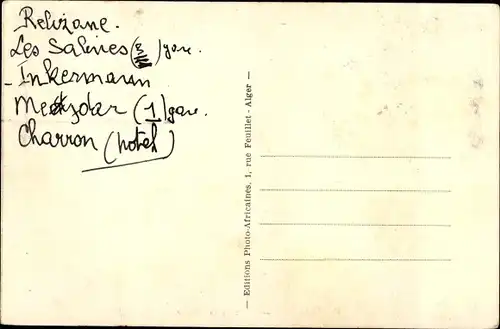 Relizane.
Les Salines ( ) gare.
- Inkermann
Merdzoar (1) gare.
Charron (hotel)
— Editions Photo-Africaines, 1, rue Feuillet - Alger —